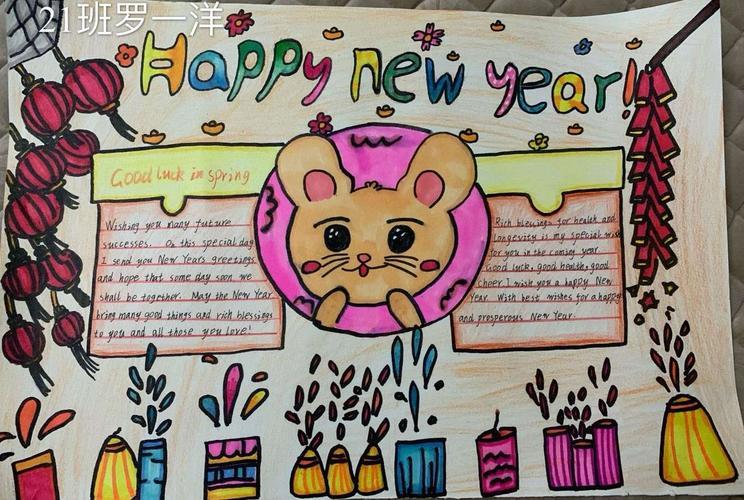 21班罗一洋
Happy new year!
Good luck in spring
Wishing you many future
successes. On this special day
I send you New Years greetings
and hope that some day soon we
shall be together. May the New Year
bring many good things and rich blessings
to you and all those you love!
Rich blessings for health and
longevity is my special wish
for you in the coming year
Good luck, good health, good
cheer I wish you a happy New
Year. With best wishes for a happy
and prosperous New Year.